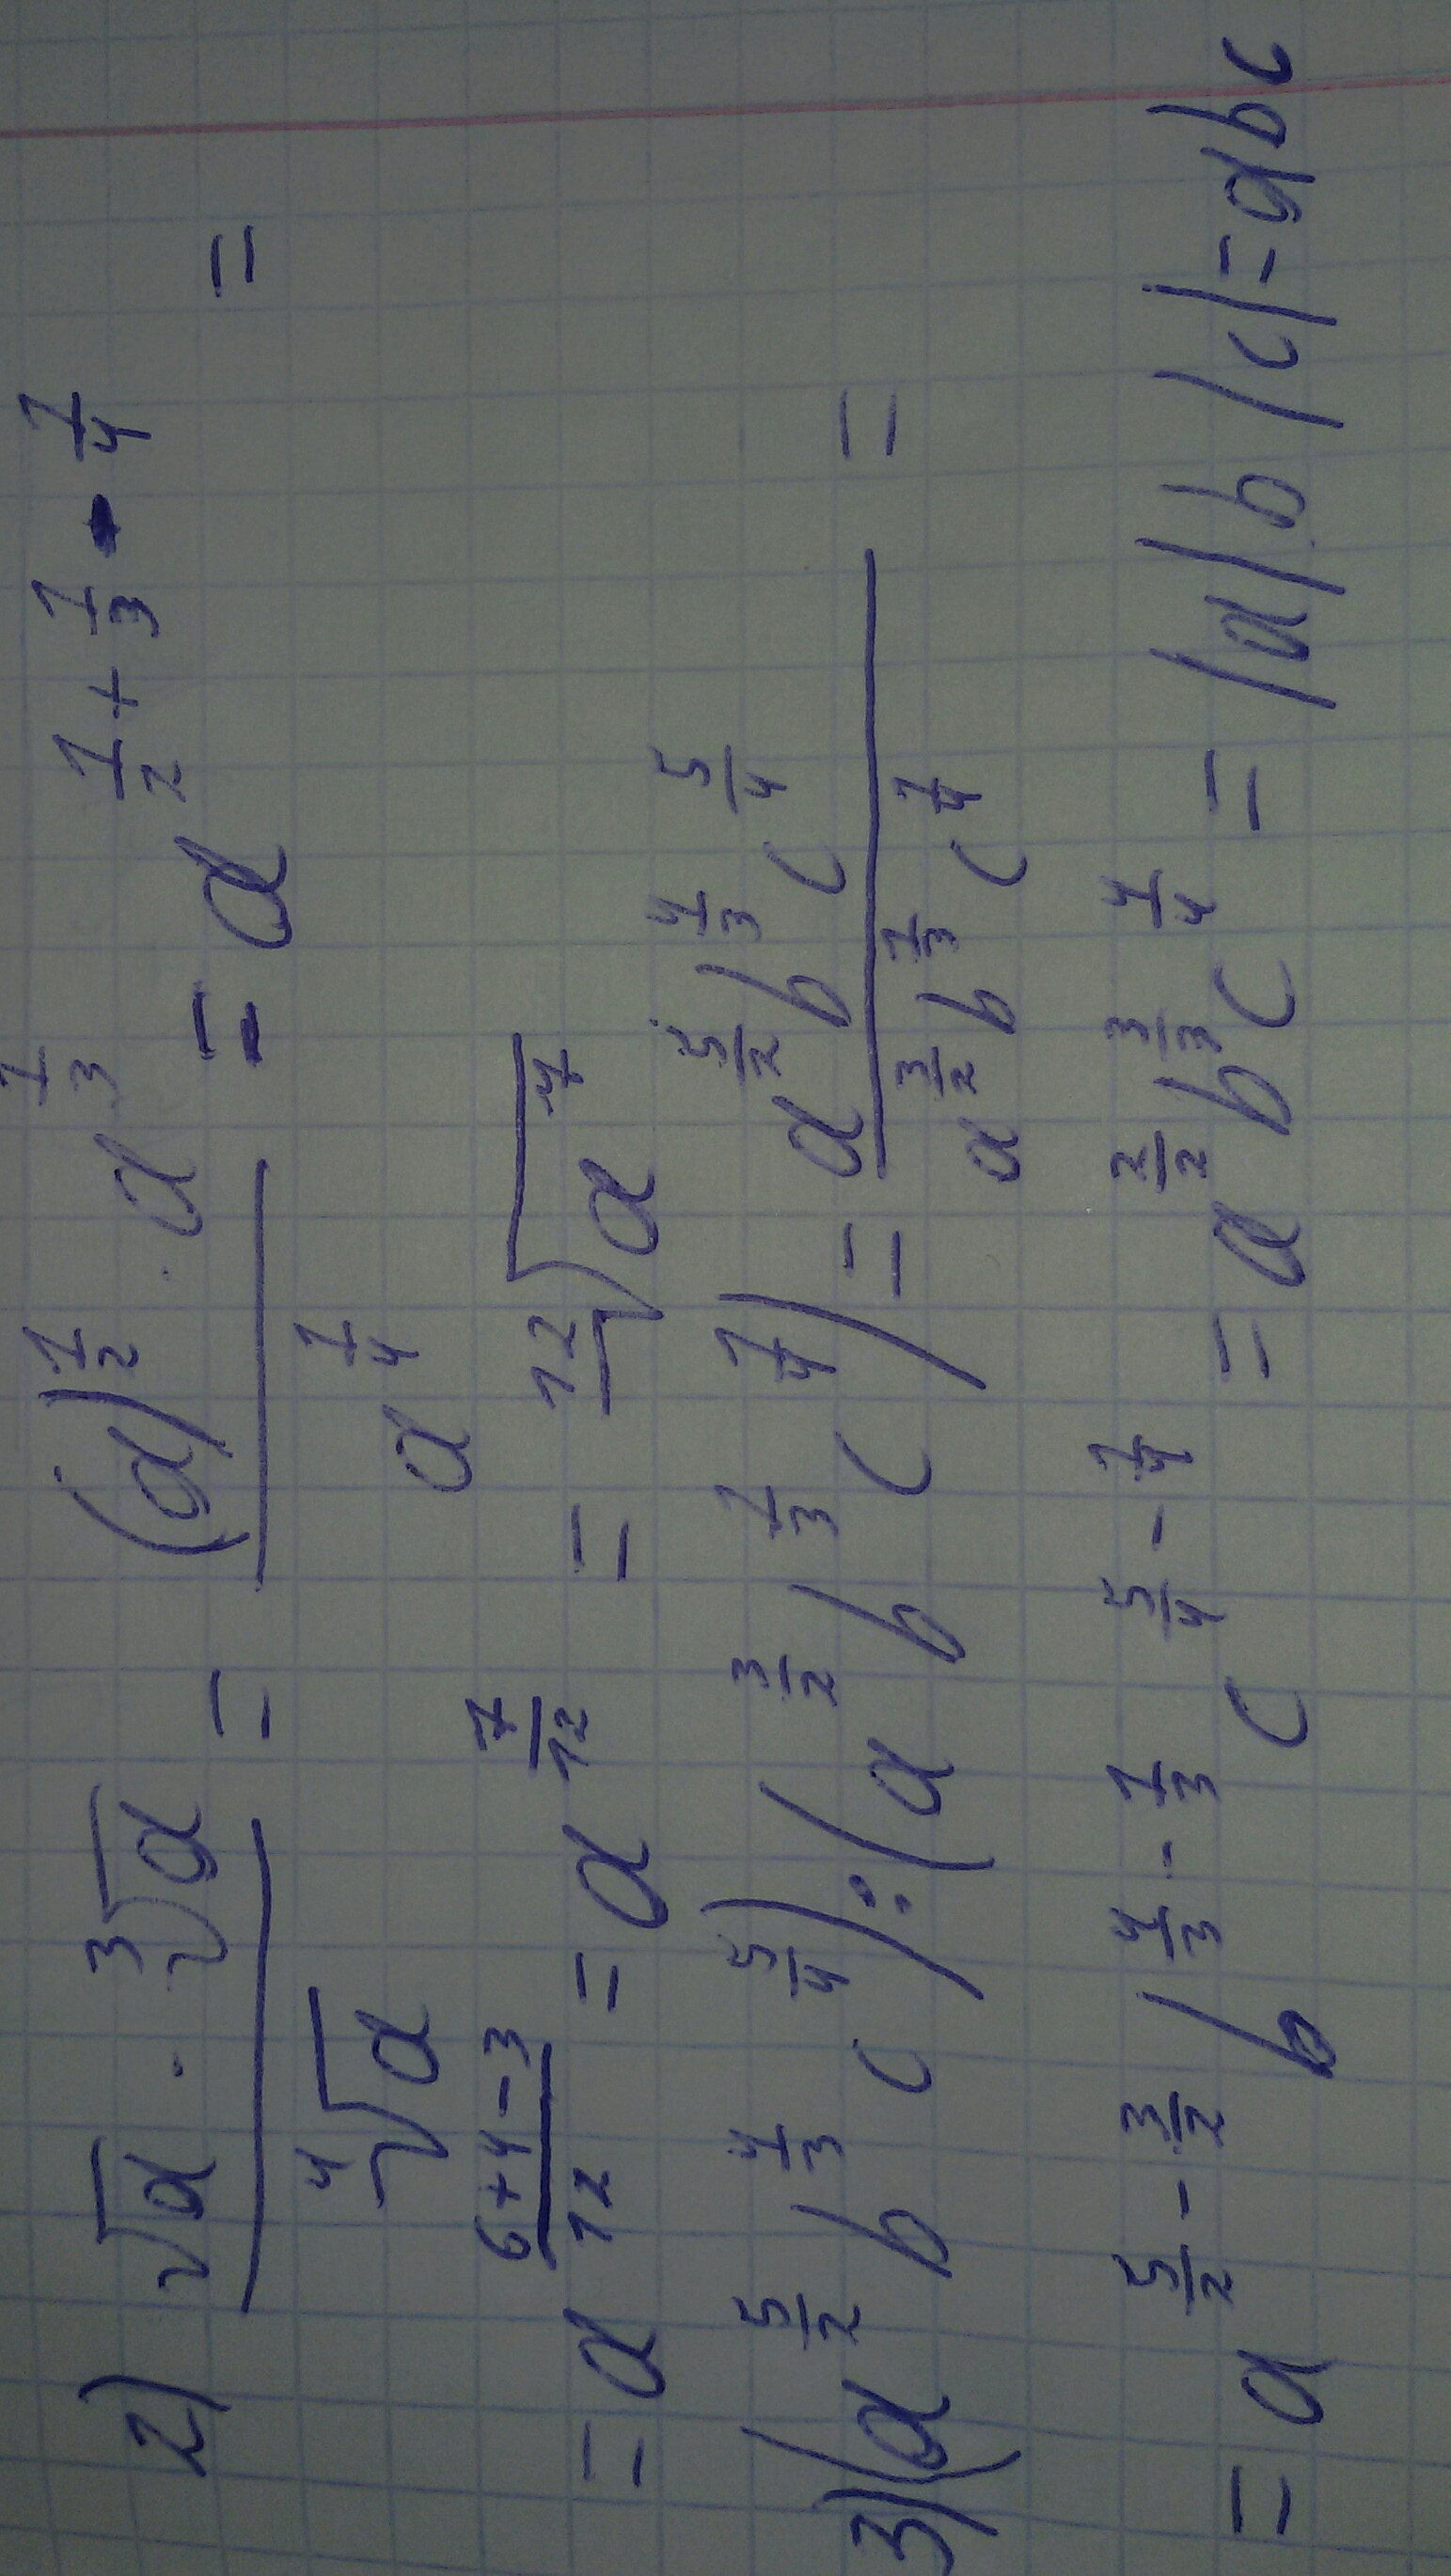 2) (√a · ∛a)/(⁴√a) = ((a)^(1/2) · a^(1/3))/(a^(1/4)) = a^(1/2 + 1/3 - 1/4) =
= a^((6+4-3)/12) = a^(7/12) = ¹²√(a^7)
3) (a^(5/2) b^(4/3) c^(5/4)) : (a^(3/2) b^(1/3) c^(1/4)) = (a^(5/2) b^(4/3) c^(5/4))/(a^(3/2) b^(1/3) c^(1/4)) =
= a^(5/2 - 3/2) b^(4/3 - 1/3) c^(5/4 - 1/4) = a^(2/2) b^(3/3) c^(4/4) = |a| |b| |c| = abc